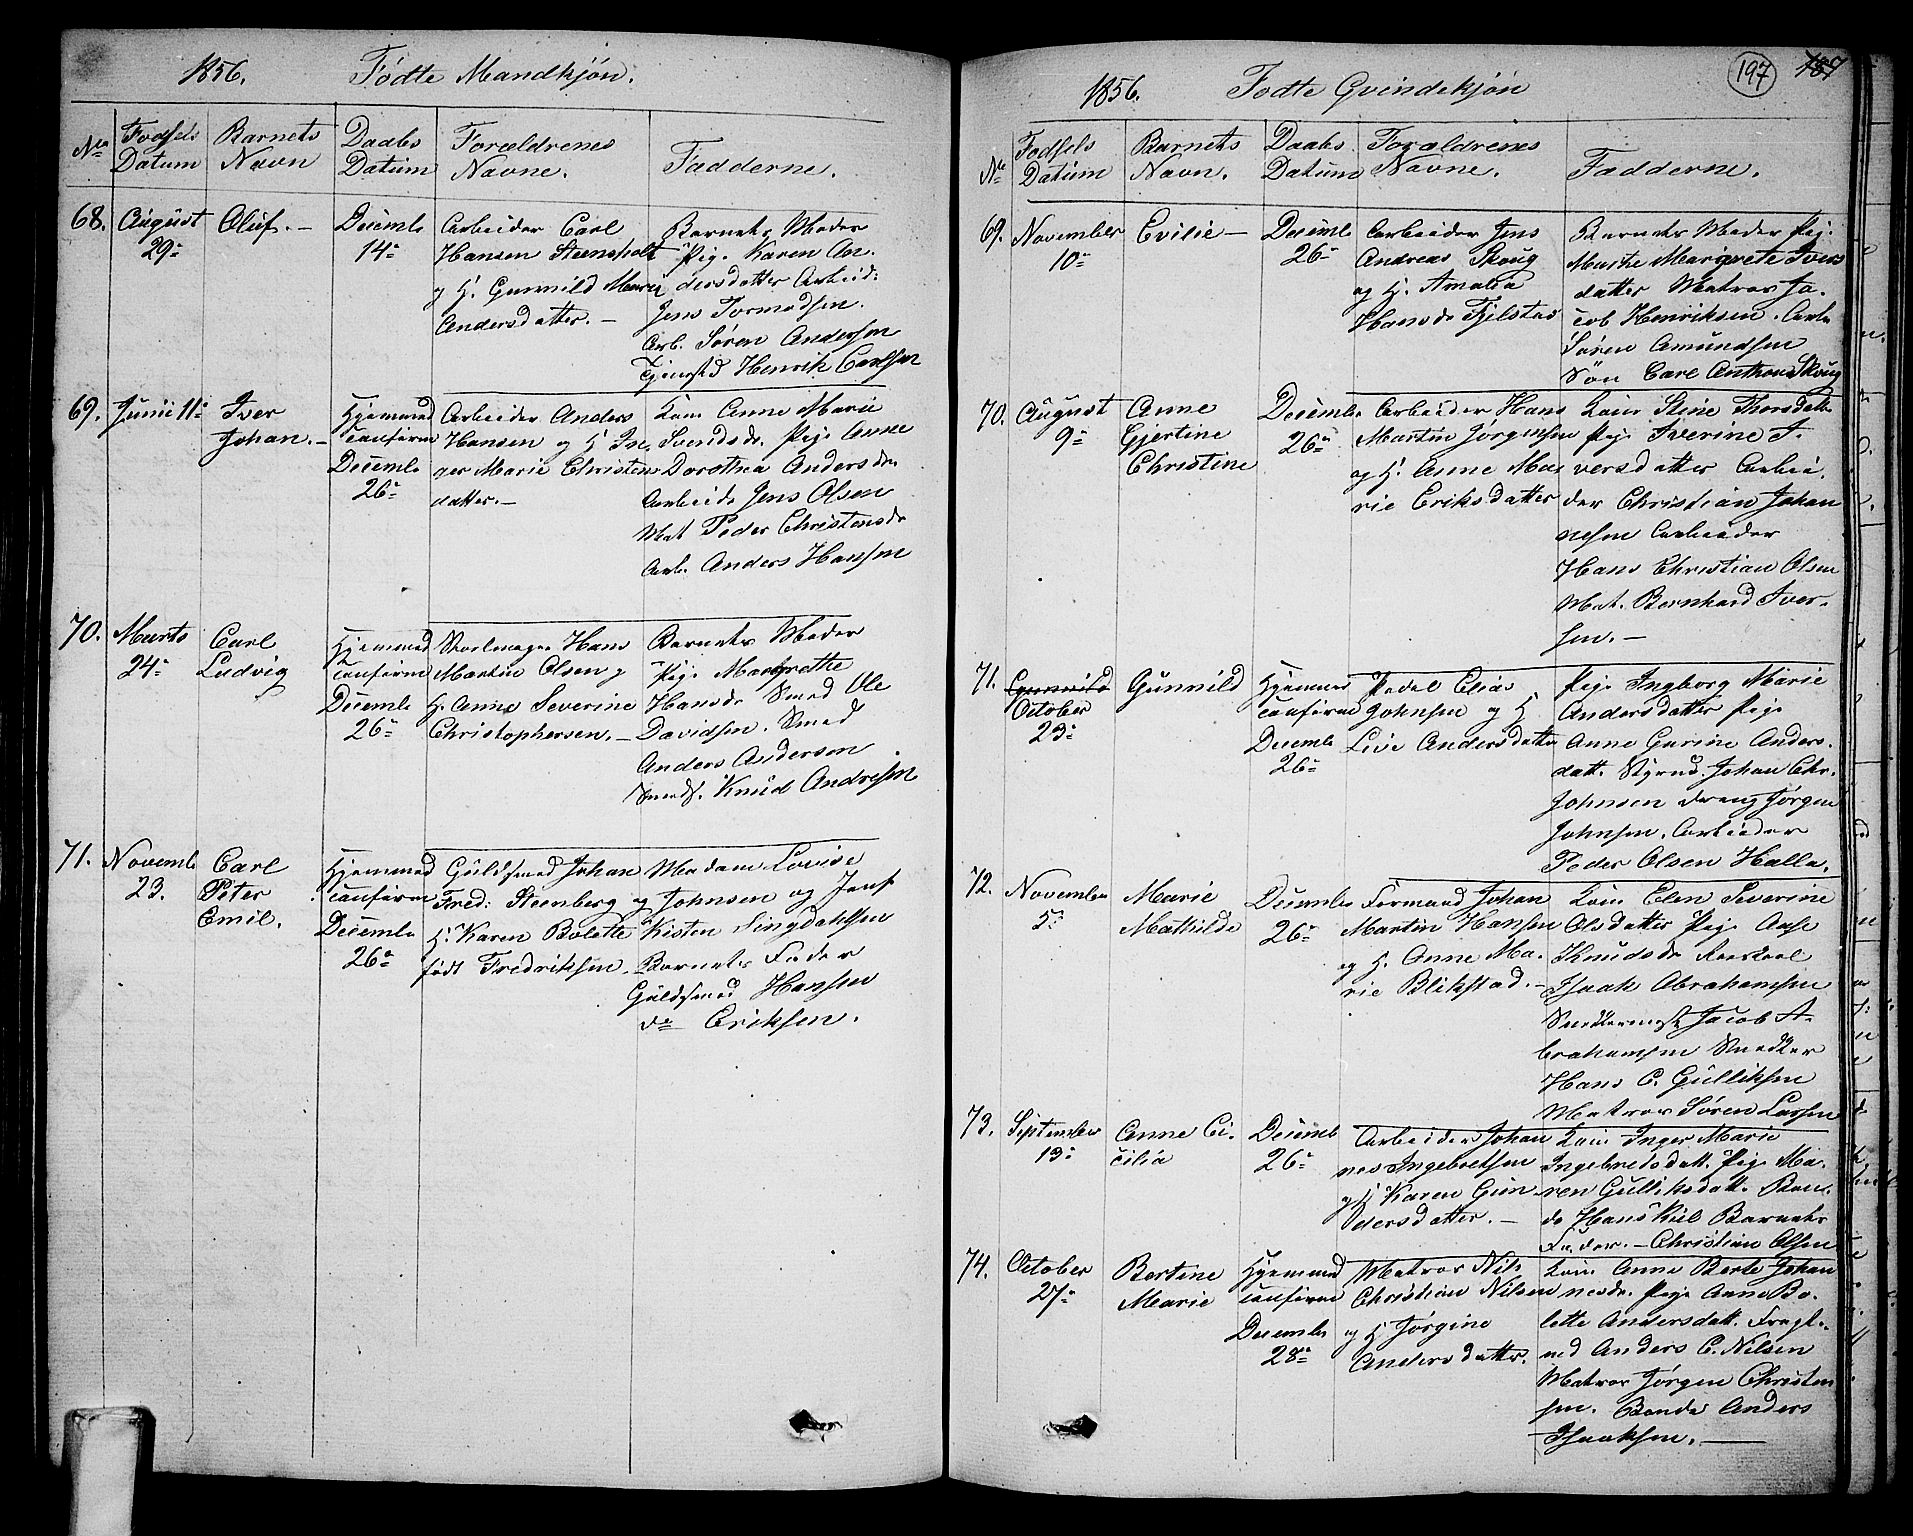 1856. Födte Mandkjön.
No Fodsels Datum
Barnets Navn
Daabs Datum
Forældrenes Navne.
Fadderne.
68. August 29de
Oluf. –
Decembr 14de
Arbeider Carl
Hansen Steensholt
og H. Gunnild Marie
Andersdatter. –
Barnets Moder
Pige Karen An-
dersdatter Arbeid:
Jens Tormodsen.
Arb. Søren Andersen
Tjenestd Henrik Carlsen
69. Junii 11te
Iver
Johan. –
Hjemmed
confirm
Decembr
26de
Arbeider Anders
Hansen og H. In-
ger Marie Christens
datter. –
Kone Anne Marie
Svendsdr. Pige Anne
Dorothea Andersdr.
Arbeidr Jens Olsen
Mat Peder Christensdr
Arb. Anders Hansen
70. Marts
24de
Carl
Ludvig
Hjemmed
confirm
Decembr
26de
Hans
Martin Olsen og
H. Anne Severine
Christophersen. –
Barnets Moder
Pige Margrethe
Hansdr Smed Ole
Davidsen. Smed
Anders Andersen
Smeds. Knud Andresen
71. Novembr
23.
Carl
Peter
Emil.
Hjemmed
confirm
Decembr
26de
Guldsmed Johan
Fred: Steenberg og
H. Karen Bolette
født Fredriksen.
Madam Lovise
Johnsen og Jomf
Kisten Lingdahlsen
Barnets Fader
Guldsmed Hansen
do Eriksen.
197 187
1856. Fodte Qvindekjön
No Fodsels Datum
Barnets Navn.
Daabs Datum
Forældrenes Navne.
Fadderne.
69. November
10de
Evilie –
Decembr
26de
Arbeider Jens
Andreas Skoug
og H. Amalia
Hansdr Fjelstad
Barnets Moder Pige
Marthe Margrete Ivers
datter Matros Ja-
cob Henriksen. Arb
Søren Amundsen
Søn Carl Anthon Skoug
70. August
9de
Anne
Gjertine
Christine
Decembr
26de
Arbeider Hans
Martin Jørgensen
og H. Anne Ma-
rie Eriksdatter
Kone Stine Thorsdatt.
Pige Iverine I-
versdatter Arbei-
der Christian Johan
nesen Arbeider
Hans Christian Olsen
Mat. Bernhard Iver-
sen. –
71. Gunnild
October
23de
Gunnild
Hjemmed
confirm
Decembr
26de
Pedel Elias
Johnsen og H.
Live Andersdatter
Pige Ingborg Marie
Andersdatter Pige
Anne Gurine Anders-
datt. Styrmd. Johan Chr.
Johnsen dreng Jørgen
Johnsen. Arbeider
Peder Olsen Halla.
72. November
5te
Marie
Mathilde
Decembr
26de
Formand Johan
Martin Hansen
og H. Anne Ma-
rie Blikstad. –
Kone Elen Severine
Olsdatter Pige Aase
Knudsdr
Isaak Abrahamsen
Snedkermestr Jacob A-
brahamsen Snedker
Hans C. Gulliksen
Matros Søren Larsen
73. September
13de
Anne Ce-
cilia
Decembr
26de
Arbeider Johan
nes Ingebretsen
og H Karen Gun-
dersdatter. –
Kone Inger Marie
Ingebretsdatt. Pige Ma-
ren Gulliksdatt. Bon-
de Hans Kiil Barnets
Fader. – Christian Olsen
74. October
27de
Bertine
Marie
Hjemmed
confirm
Decembr
28de
Matros Nils
Christian Nilsen
og H. Jørgine
Andersdatter.
Kone Anne Berte Johan
nesdr. Pige Anne Bo-
lette Andersdatt. Fragt-
md Anders C. Nilsen
Matros Jørgen Christen
sen. Bonde Anders
Isaaksen. –